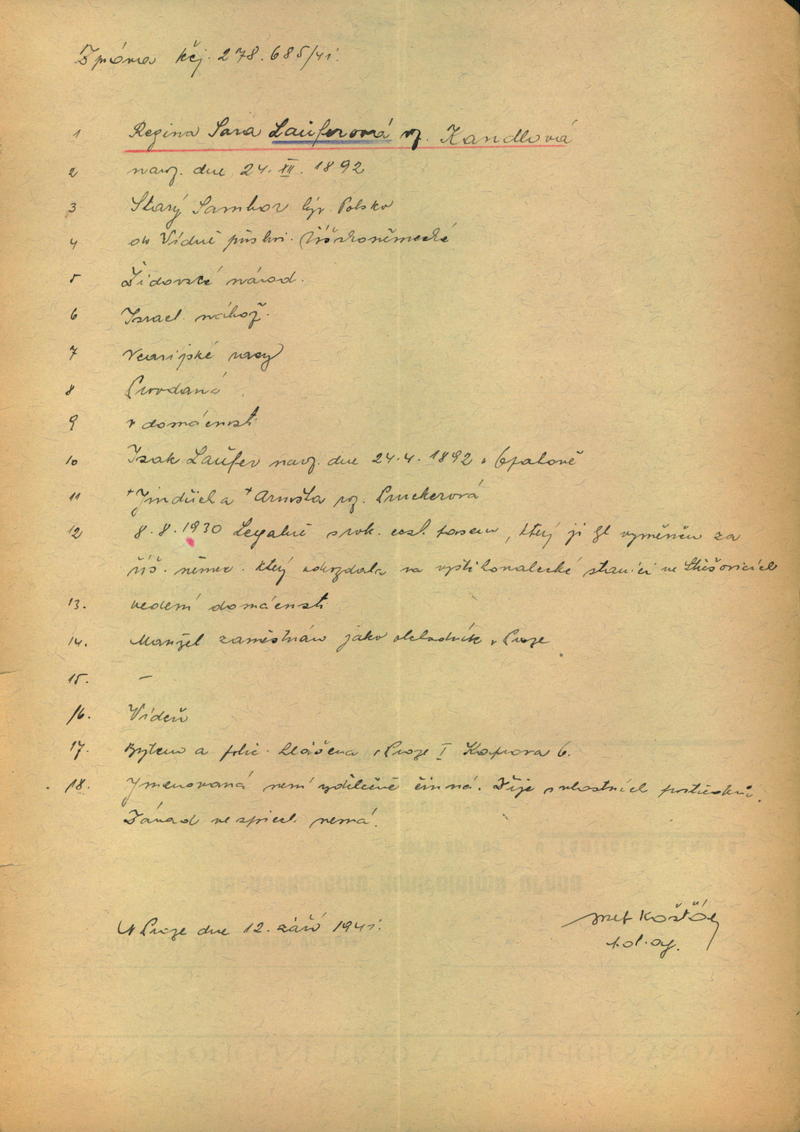 Zpráva kčj. 278.685/41.
1 Regina Sara Lauferová roz. Kandlová
2 naroz. dne 24. XII. 1892
3 Starý Sambor Polsko
4 do Vídně přísl. říšskoněmecké
5 Židovské národ.
6 Israel. nábož.
7 Nearijské rasy
8 Provdaná
9 v domácnosti
10 Isak Laufer naroz. dne 24.4.1892 v Opatově
11 +Jindřich a +Arnošta roz.
12 8.8.1930 Legálně s cest. pasem, který jí byl vyměněn za
říš. německ. který odevzdala na vystěhovalecké stanici ve Střešovicích
13. vedení domácnosti
14. Manžel zaměstnán jako obchodník v Praze
15. —
16. Vídeň
17. Bytem a polic. hlášena v Praze I Kaprova 6.
18. Jmenovaná není výdělečně činná. Žije z vlastních prostředků.
Závad ve spisech nemá.
V Praze dne 12. září 1941.
Košťál